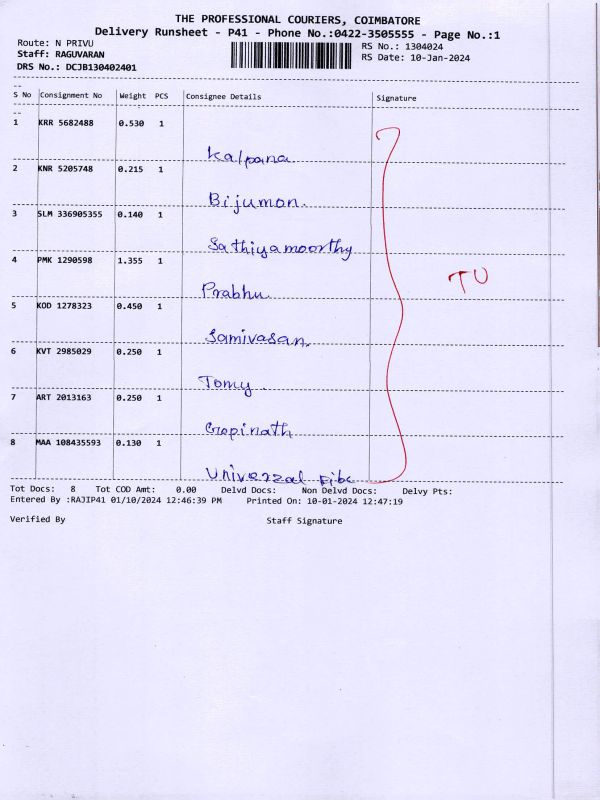 THE PROFESSIONAL COURIERS, COIMBATORE
Delivery Runsheet - P41 - Phone No.:0422-3505555 - Page No.:1
Route: N PRIVU
RS No.: 1304024
Staff: RAGUVARAN
RS Date: 10-Jan-2024
DRS No.: DCJB130402401
S No Consignment No Weight PCS Consignee Details Signature
1 KRR 5682488 0.530 1
Kalpana
2 KNR 5205748 0.215 1
Bijumon.
3 SLM 336905355 0.140 1
Sathiyamoorthy
4 PMK 1290598 1.355 1
TU
Prabhu.
5 KOD 1278323 0.450 1
Samivasan.
6 KVT 2985029 0.250 1
Tomy.
7 ART 2013163 0.250 1
Gopinath
8 MAA 108435593 0.130 1
Universal Fibc
Tot Docs: 8 Tot COD Amt: 0.00 Delvd Docs: Non Delvd Docs: Delvy Pts:
Entered By :RAJIP41 01/10/2024 12:46:39 PM Printed On: 10-01-2024 12:47:19
Verified By Staff Signature